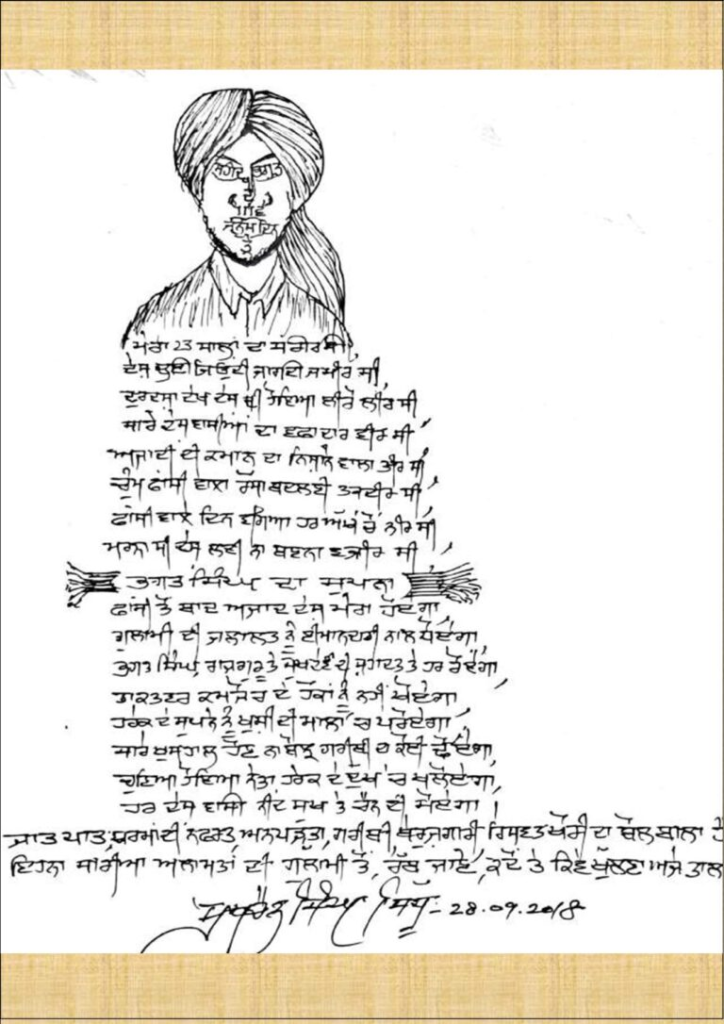 ਸ਼ਹੀਦ ਭਗਤ
ਦੇ
111ਵੇਂ
ਜਨਮ ਦਿਨ
ਤੇ
ਮੇਰਾ 23 ਸਾਲਾਂ ਦਾ ਸਰੀਰ ਸੀ,
ਦੇਸ਼ ਲਈ ਜਾਗਦੀ ਜ਼ਮੀਰ ਸੀ,
ਦੁਰਦਸ਼ਾ ਦੇਖ ਦੇਸ਼ ਦੀ ਹੋਇਆ ਲੀਰੋ ਲੀਰ ਸੀ
ਸਾਰੇ ਦੇਸ਼ ਵਾਸੀਆਂ ਦਾ ਵਫ਼ਾਦਾਰ ਵੀਰ ਸੀ,
ਅਜ਼ਾਦੀ ਦੀ ਕਮਾਨ ਦਾ ਨਿਸ਼ਾਨੇ ਵਾਲਾ ਤੀਰ ਸੀ,
ਚੁੰਮ ਫਾਂਸੀ ਵਾਲਾ ਰੱਸਾ ਬਦਲਣੀ ਤਕਦੀਰ ਸੀ,
ਫਾਂਸੀ ਵਾਲੇ ਦਿਨ ਵਗਿਆ ਹਰ ਅੱਖ ਚੋਂ ਨੀਰ ਸੀ,
ਮਰਨਾ ਸੀ ਦੇਸ਼ ਲਈ ਨਾ ਬਣਨਾ ਵਜ਼ੀਰ ਸੀ,
ਭਗਤ ਸਿੰਘ ਦਾ ਸੁਪਨਾ
ਫਾਂਸੀ ਤੋਂ ਬਾਦ ਅਜ਼ਾਦ ਦੇਸ਼ ਮੇਰਾ ਹੋਏਗਾ,
ਗੁਲਾਮੀ ਦੀ ਜ਼ਲਾਲਤ ਨੂੰ ਈਮਾਨਦਾਰੀ ਨਾਲ ਧੋਏਗਾ,
ਭਗਤ ਸਿੰਘ, ਰਾਜਗੁਰੂ ਤੇ ਸੁਖਦੇਵ ਦੀ ਸ਼ਹਾਦਤ ਤੇ ਹਰ ਰੋਏਗਾ,
ਤਾਕਤਵਰ ਕਮਜ਼ੋਰ ਦੇ ਹੱਕਾਂ ਨੂੰ ਨਹੀਂ ਖੋਏਗਾ,
ਹਰੇਕ ਦੇ ਸੁਪਨੇ ਨੂੰ ਖੁਸ਼ੀ ਦੀ ਮਾਲਾ 'ਚ ਪਰੋਏਗਾ,
ਸਾਰੇ ਖੁਸ਼ਹਾਲ ਹੋਣ ਨਾ ਬੋਝ ਗਰੀਬੀ ਦਾ ਕੋਈ ਢੋਏਗਾ,
ਚੁਣਿਆ ਹੋਇਆ ਨੇਤਾ ਹਰੇਕ ਦੇ ਦੁੱਖ 'ਚ ਖਲੋਏਗਾ,
ਹਰ ਦੇਸ਼ ਵਾਸੀ ਨੀਂਦ ਸੁਖ ਤੇ ਚੈਨ ਦੀ ਸੋਏਗਾ।
ਜਾਤ ਪਾਤ, ਧਰਮਾਂ ਦੀ ਨਫ਼ਰਤ, ਅਨਪੜ੍ਹਤਾ, ਗਰੀਬੀ ਬੇਰੁਜ਼ਗਾਰੀ, ਰਿਸ਼ਵਤ ਖੋਰੀ ਦਾ ਬੋਲ ਬਾਲਾ ਹੈ
ਇਹਨਾ ਸਾਰੀਆ ਅਲਾਮਤਾਂ ਦੀ ਗੁਲਾਮੀ ਤੋਂ, ਰੱਬ ਜਾਣੇ, ਕਦੋਂ ਤੇ ਕਿਵੇਂ ਖੁੱਲਣਾ ਅਜੇ ਤਾਲਾ
ਸਿੰਘ ਸਿੱਧੂ - 28.09.2018